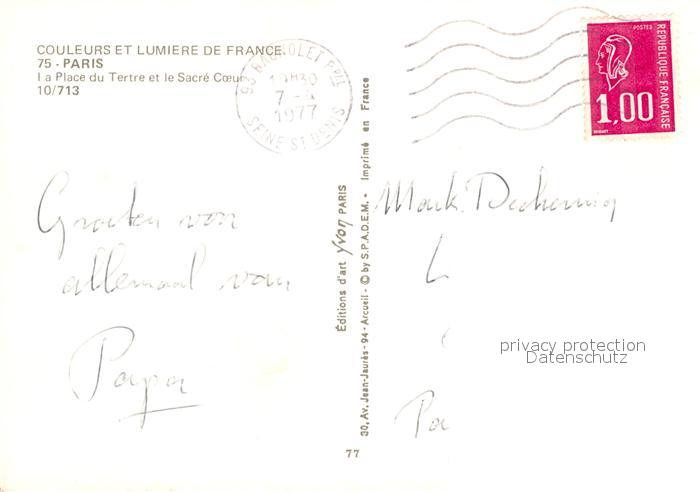 COULEURS ET LUMIERE DE FRANCE
75 - PARIS
La Place du Tertre et le Sacré Cœur
10/713
93 BAGNOLET PPAL
1 H30
7 -
1977
SEINE-ST-DENIS
POSTES
REPUBLIQUE FRANÇAISE
1,00
Groeten voor
allemaal van
Papa
Editions d'art Yvon PARIS
30, Av. Jean-Jaurès - 94 - Arcueil - © by S.P.A.D.E.M. - Imprimé en France
77
Mark
L
Pa
privacy protection
Datenschutz